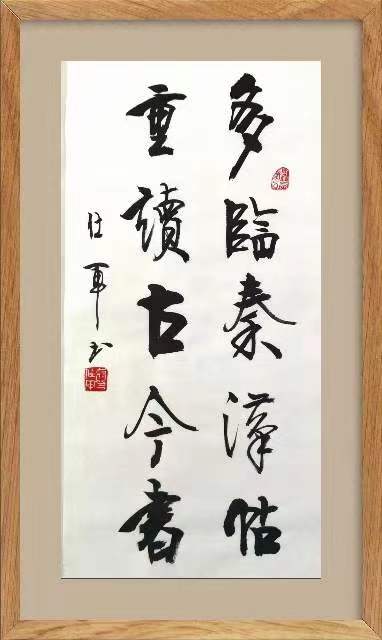 多臨秦漢帖
重讀古今書
仕軍书